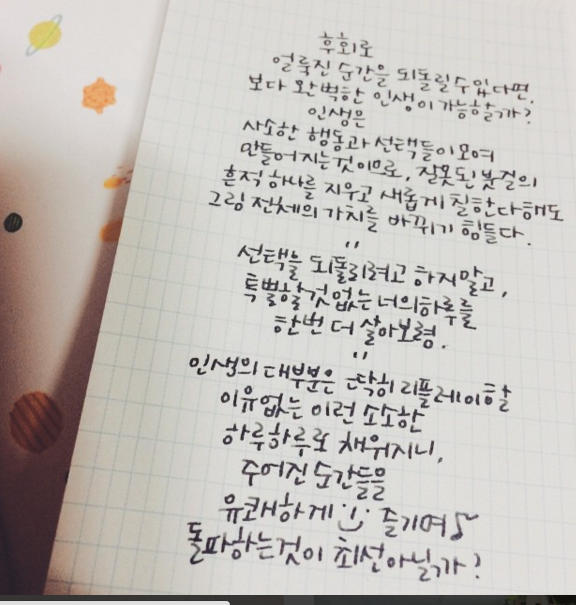 후회로
얼룩진 순간을 되돌릴 수 있다면,
보다 완벽한 인생이 가능할까?
인생은
사소한 행동과 선택들이 모여
만들어지는 것이므로, 잘못된 붓질의
흔적 하나를 지우고 새롭게 칠한다 해도
그림 전체의 가치를 바꾸기 힘들다.
"
선택을 되돌리려고 하지말고,
특별할것 없는 너의 하루를
한번 더 살아보렴.
"
인생의 대부분은 딱히 리플레이 할
이유 없는 이런 소소한
하루하루로 채워지니,
주어진 순간들을
유쾌하게 :) 즐기며♪
돌파하는 것이 최선 아닐까?